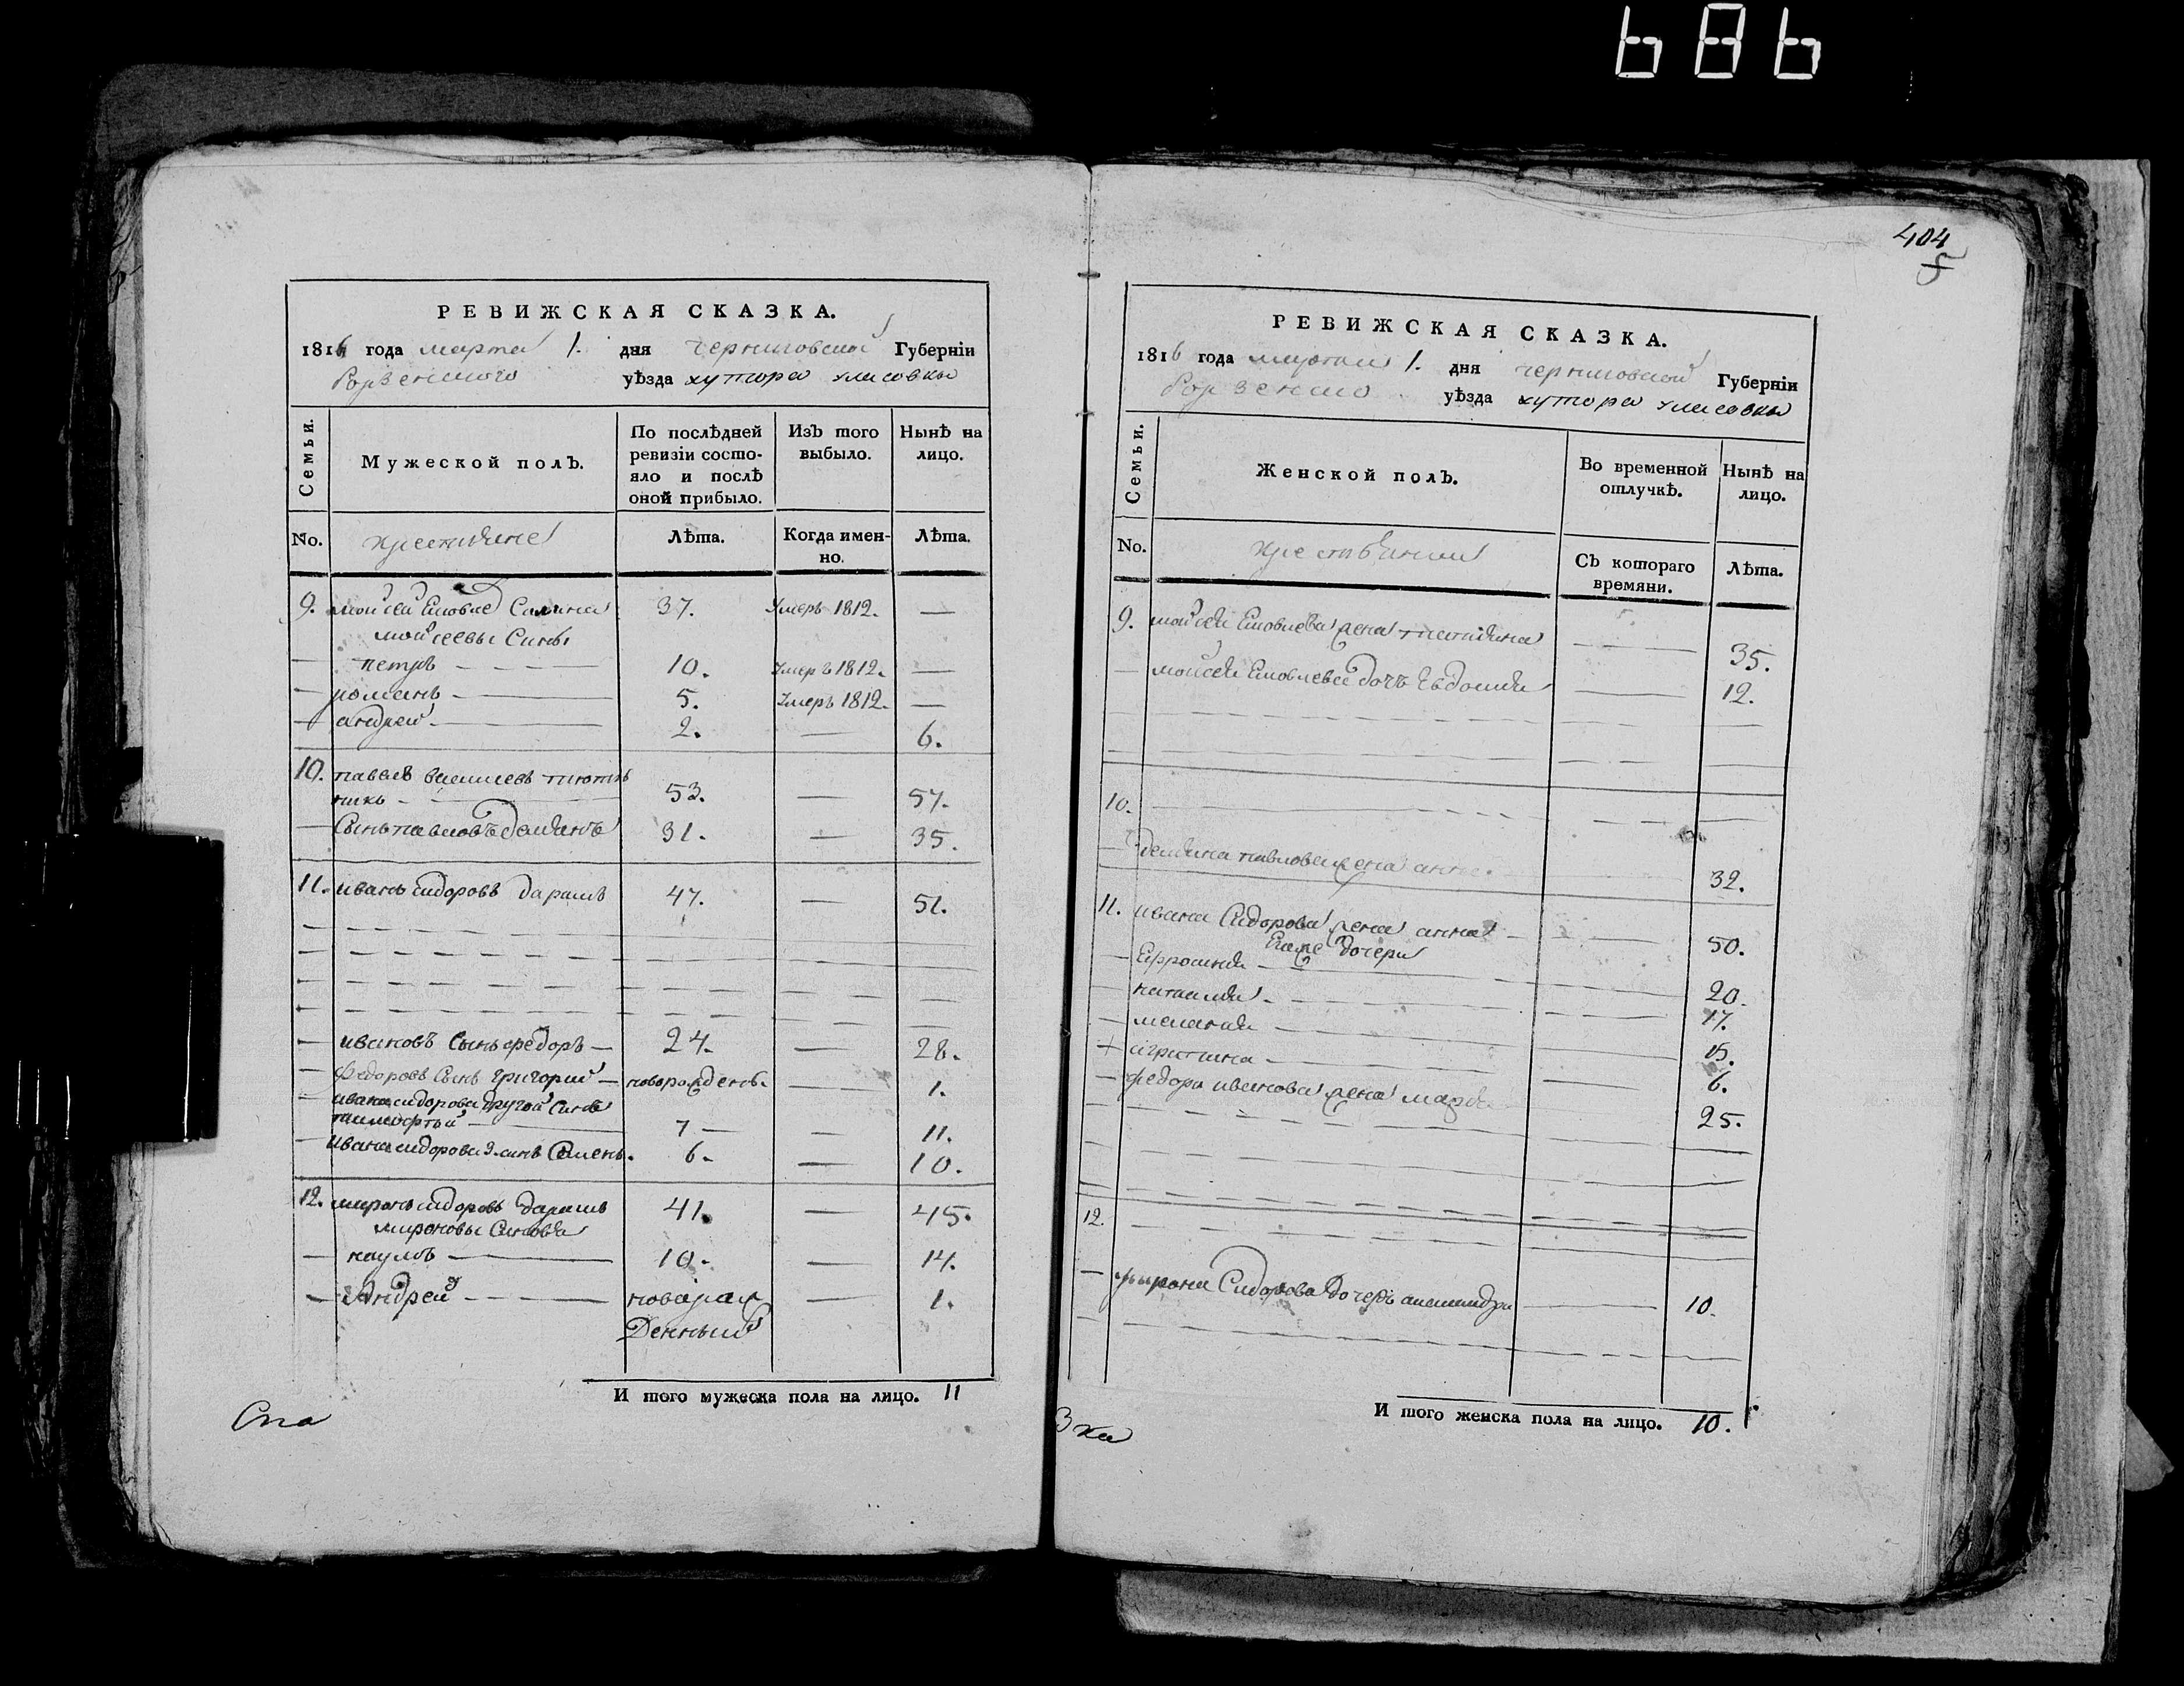 686
404
РЕВИЖСКАЯ СКАЗКА.
1816 года марта 1. дня черниговской Губерніи
Борзенского уѣзда хутора улисовки
Семьи.
Мужеской полъ.
По послѣдней ревизіи состояло и послѣ оной прибыло.
Изъ того выбыло.
Нынѣ на лицо.
No.
крестьяне
Лѣта.
Когда именно.
Лѣта.
9. мойсей 37. Умеръ 1812. —
мойсеевы Сины
— петръ — 10. Умеръ 1812. —
— романъ — 5. Умеръ 1812. —
— андрей — 2. — 6.
10. павелъ тютюн
никъ — 53. — 57.
— Сынъ павловъ демянъ 31. — 35.
11. иванъ сидоровъ 47. — 51.
— ивановъ Сынъ федоръ — 24. — 28.
— федоровъ Сынъ григорий — новорожденъ. — 1.
— ивана сидорова другой Синъ
тимофтей — 7 — — 11.
— ивана сидорова 3. синъ Семенъ. 6. — 10.
12. миронъ сидоровъ 41. — 45.
мироновы Синовья
— наумъ — 10. — 14.
— Андрей — новарож
денный — 1.
И того мужеска пола на лицо. 11
Ска
РЕВИЖСКАЯ СКАЗКА.
1816 года марта 1. дня черниговской Губерніи
Борзенско уѣзда хутора улисовки
Семьи.
Женской полъ.
Во временной отлучкѣ.
Нынѣ на лицо.
No.
крестьянки
Съ котораго времяни.
Лѣта.
9. мойсея жена татияна — 35.
— мойсея дочъ Евдокия — 12.
10.
— демяна павлова жена анна — 32.
11. ивана Сидорова жена анна — 50.
Еиже дочери
— Ефросиния — 20.
— наталия — 17.
— мелания — 15.
— агрипина — 6.
— федора иванова жена марфа — 25.
12.
— мирона Сидорова дочеръ александра — 10.
И того женска пола на лицо. 10.
Зка